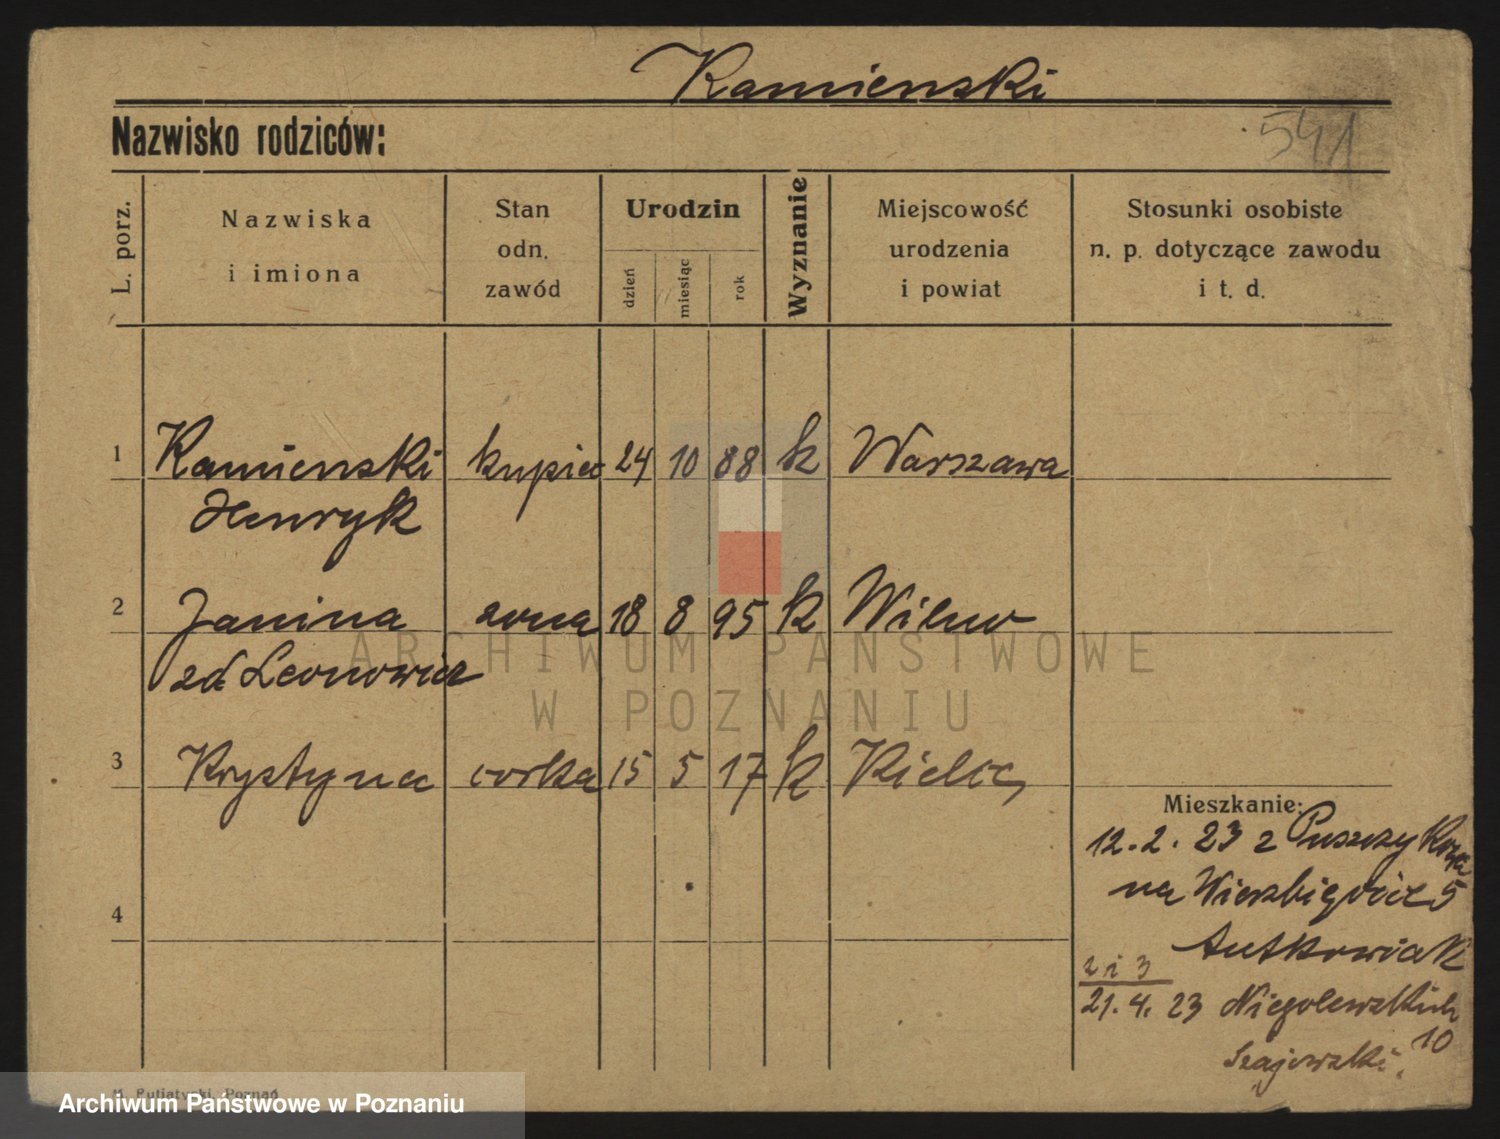 Kamienski
Nazwisko rodziców:
541
L. porz.
Nazwiska
i imiona
Stan
odn.
zawód
Urodzin
dzień
miesiąc
rok
Wyznanie
Miejscowość
urodzenia
i powiat
Stosunki osobiste
n. p. dotyczące zawodu
i t. d.
1 Kamienski kupiec 24 10 88 k Warszawa
Henryk
2 Janina zona 18 8 95 k Wilno
zd Leonowicz
3 Krystyna corka 15 5 17 k Kielce
4
Mieszkanie:
12.2.23 z Puszczykowa
na Wierzbięcice 5
Antkowiak
2 i 3
21.4.23 Niegolewskich
10
Szajewski
ARCHIWUM PAŃSTWOWE
W POZNANIU
Putiatycki, Poznań
Archiwum Państwowe w Poznaniu